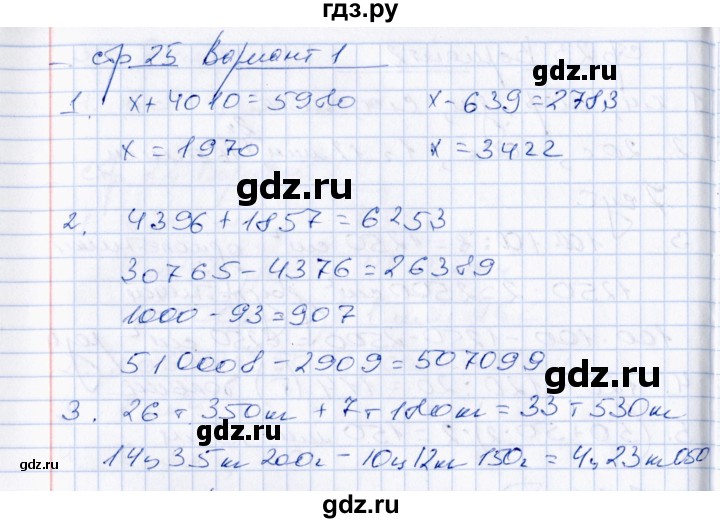 гдз.ру
стр. 25 Вариант 1
1. x + 4010 = 5980 x - 639 = 2783
x = 1970 x = 3422
gdz.ru
2. 4396 + 1857 = 6253
30765 - 4376 = 26389
1000 - 93 = 907
510008 - 2909 = 507099
gdz.ru
3. 26 т 350 кг + 7 т 180 кг = 33 т 530 кг
14 ц 35 кг 200 г - 10 ц 12 кг 150 г = 4 ц 23 кг 050
gdz.ru